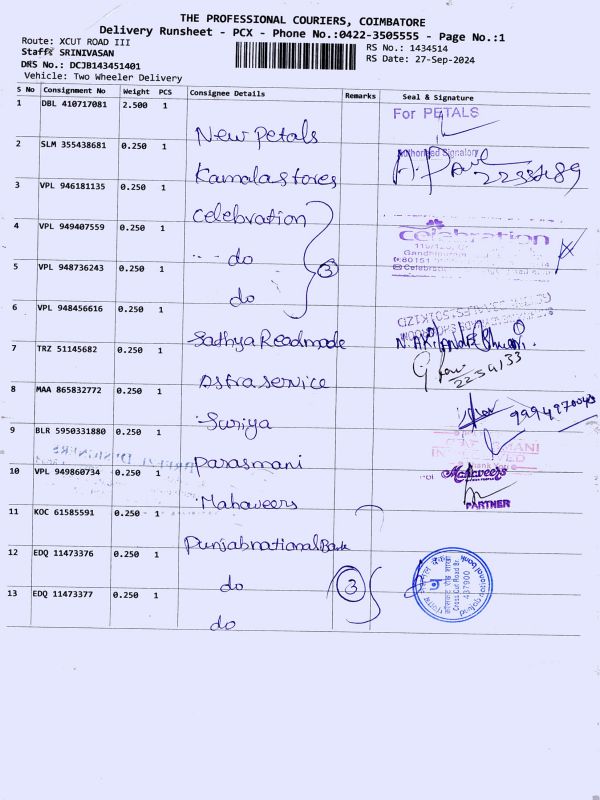 THE PROFESSIONAL COURIERS, COIMBATORE
Delivery Runsheet - PCX - Phone No.:0422-3505555 - Page No.:1
Route: XCUT ROAD III
RS No.: 1434514
Staff: SRINIVASAN
RS Date: 27-Sep-2024
DRS No.: DCJB143451401
Vehicle: Two Wheeler Delivery
S No Consignment No Weight PCS Consignee Details Remarks Seal & Signature
1 DBL 410717081 2.500 1 New Petals For PETALS
Authorised Signatory
2 SLM 355438681 0.250 1 Kamala stores
3 VPL 946181135 0.250 1 Celebration
4 VPL 949407559 0.250 1 do celebration
5 VPL 948736243 0.250 1 do 3
6 VPL 948456616 0.250 1 Sathya Readmade
7 TRZ 51145682 0.250 1 Astra service 2234133
8 MAA 865832772 0.250 1 Suriya
9 BLR 5950331880 0.250 1 Parasmani
10 VPL 949860734 0.250 1 Mahaveers For Mahaveers
PARTNER
11 KOC 61585591 0.250 1 Punjab national Bank
12 EDQ 11473376 0.250 1 do 3
Cross Cut Road Br.
437900
punjab national bank
13 EDQ 11473377 0.250 1 do